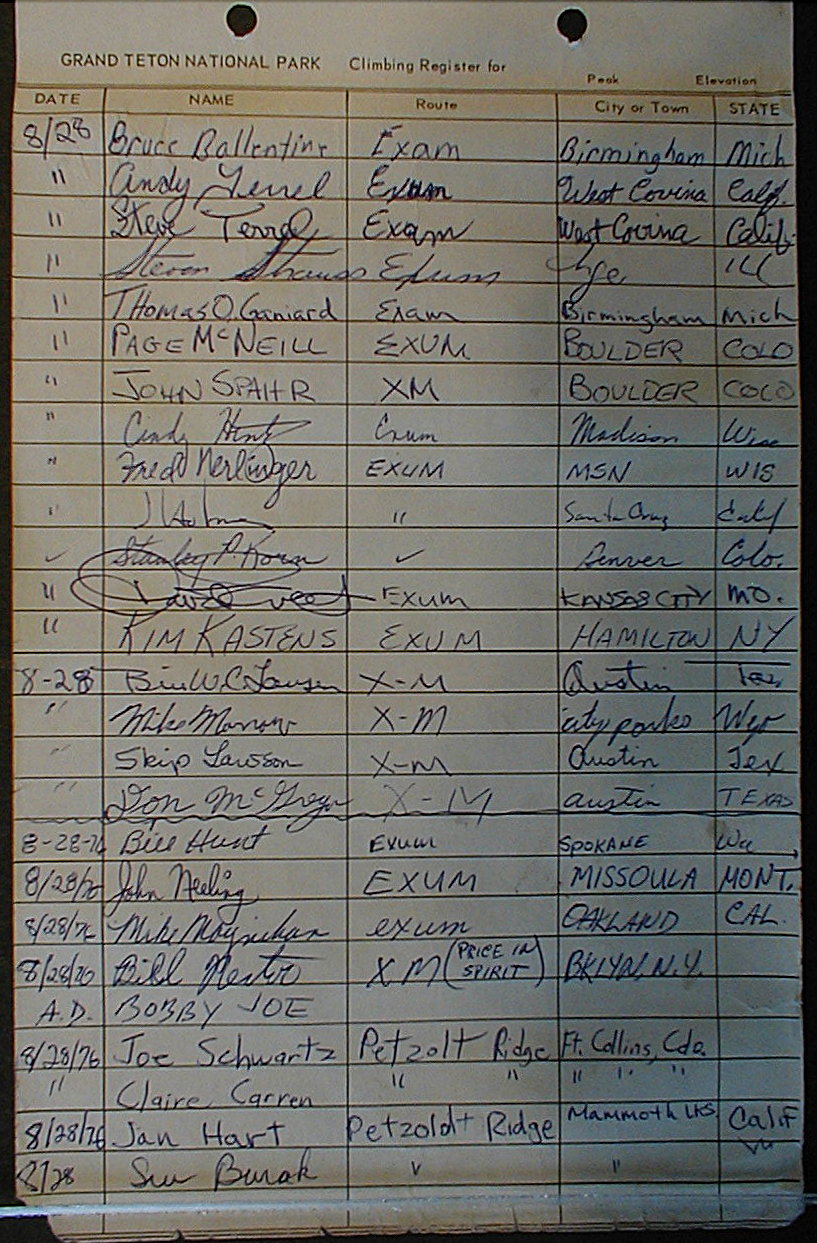 GRAND TETON NATIONAL PARK Climbing Register for
Peak Elevation
DATE NAME Route City or Town STATE
8/28 Bruce Ballentine Exam Birmingham Mich
" Andy Terrel Exum West Covina Calif.
" Steve Terrel Exam West Covina Calif.
" Steven Strauss Exum Ill
" Thomas O. Ganiard Exam Birmingham Mich
" PAGE McNEILL EXUM BOULDER COLO
" JOHN SPAHR XM BOULDER COLO
" Cindy Exum Madison Wisc
" Fred Nerlinger EXUM MSN WIS
" " Santa Cruz Calif
✓ Stanley P. Korn ✓ Denver Colo.
" EXUM KANSAS CITY MO.
" KIM KASTENS EXUM HAMILTON NY
8-28 X-M Austin Tex,
" Mike Morrow X-M city parks Wyo
" Skip Lawson X-M Austin Tex
" Don X-M austin TEXAS
8-28-76 Bill Hunt Exum SPOKANE Wa
8/28/76 John Neeling EXUM MISSOULA MONT.
8/28/76 Mike Moynihan exum OAKLAND CAL.
8/28/76 Bill XM (PRICE IN SPIRIT) BKLYN, N.Y.
A.D. BOBBY JOE
8/28/76 Joe Schwartz Petzolt Ridge Ft. Collins, Colo.
" Claire Carren " " " " "
8/28/76 Jan Hart Petzoldt Ridge Mammoth LKS. Calif
8/28 Sue Burak " "